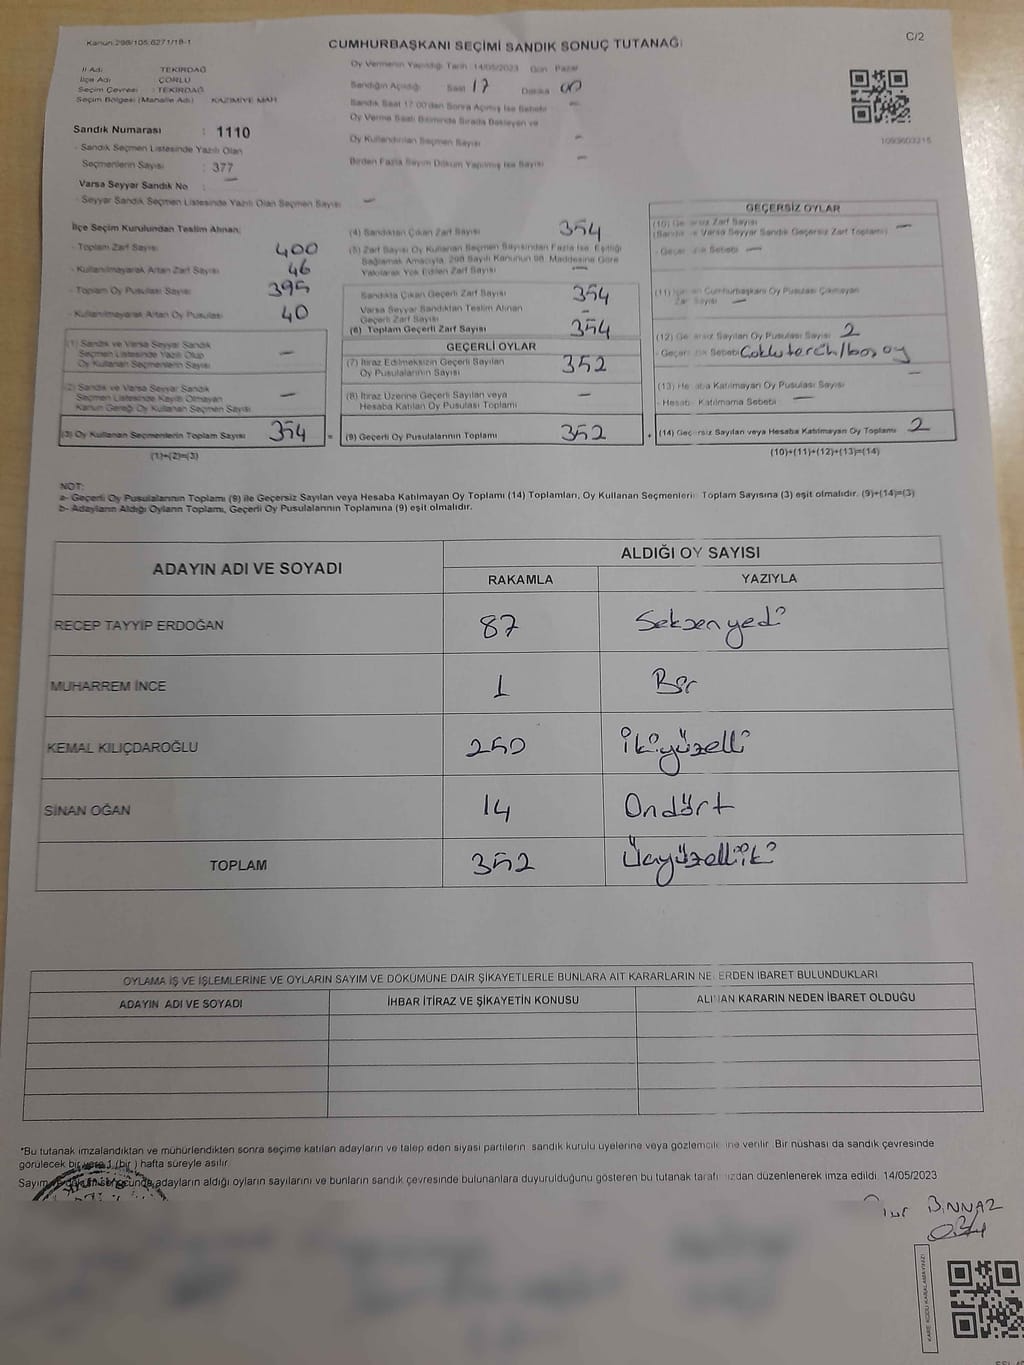 Kanun:298/105,6271/18-1
C/2
CUMHURBAŞKANI SEÇİMİ SANDIK SONUÇ TUTANAĞI
İl Adı : TEKİRDAĞ
İlçe Adı : ÇORLU
Seçim Çevresi : TEKİRDAĞ
Seçim Bölgesi (Mahalle Adı) : KAZIMİYE MAH
Sandık Numarası : 1110
- Sandık Seçmen Listesinde Yazılı Olan
Seçmenlerin Sayısı : 377
Varsa Seyyar Sandık No : —
- Seyyar Sandık Seçmen Listesinde Yazılı Olan Seçmen Sayısı —
Oy Vermenin Yapıldığı Tarih :14/05/2023 Gün Pazar
Sandığın Açıldığı Saat 17 Dakika 00
Sandık Saat 17:00'dan Sonra Açılmış İse Sebebi —
Oy Verme Saati Bitiminde Sırada Bekleyen ve
Oy Kullandırılan Seçmen Sayısı —
Birden Fazla Sayım Döküm Yapılmış İse Sayısı —
1093603215
İlçe Seçim Kurulundan Teslim Alınan;
- Toplam Zarf Sayısı 400
- Kullanılmayarak Artan Zarf Sayısı 46
- Toplam Oy Pusulası Sayısı 395
- Kullanılmayarak Artan Oy Pusulası 40
(1) Sandık ve Varsa Seyyar Sandık
Seçmen Listesinde Yazılı Olup
Oy Kullanan Seçmenlerin Sayısı —
(2) Sandık ve Varsa Seyyar Sandık
Seçmen Listesinde Kayıtlı Olmayan
Kanun Gereği Oy Kullanan Seçmen Sayısı —
(3) Oy Kullanan Seçmenlerin Toplam Sayısı 354
(1)+(2)=(3)
(4) Sandıktan Çıkan Zarf Sayısı 354
(5) Zarf Sayısı Oy Kullanan Seçmen Sayısından Fazla İse, Eşitliği
Sağlamak Amacıyla, 298 Sayılı Kanunun 98. Maddesine Göre
Yakılarak Yok Edilen Zarf Sayısı —
Sandıkta Çıkan Geçerli Zarf Sayısı 354
Varsa Seyyar Sandıktan Teslim Alınan
Geçerli Zarf Sayısı —
(6) Toplam Geçerli Zarf Sayısı 354
GEÇERLİ OYLAR
(7) İtiraz Edilmeksizin Geçerli Sayılan
Oy Pusulalarının Sayısı 352
(8) İtiraz Üzerine Geçerli Sayılan veya
Hesaba Katılan Oy Pusulası Toplamı —
= (9) Geçerli Oy Pusulalarının Toplamı 352
GEÇERSİZ OYLAR
(10) Zarf Sayısı
Varsa Seyyar Sandık Geçersiz Zarf Toplamı) —
Sebebi —
Cumhurbaşkanı Oy Pusulası Çıkmayan
Sayısı —
(12) Sayılan Oy Pusulası Sayısı 2
- Sebebi
(13) Katılmayan Oy Pusulası Sayısı —
- Katılmama Sebebi —
+ (14) Geçersiz Sayılan veya Hesaba Katılmayan Oy Toplamı 2
(10)+(11)+(12)+(13)=(14)
NOT:
a- Geçerli Oy Pusulalarının Toplamı (9) ile Geçersiz Sayılan veya Hesaba Katılmayan Oy Toplamı (14) Toplamları, Oy Kullanan Seçmenlerin Toplam Sayısına (3) eşit olmalıdır. (9)+(14)=(3)
b- Adayların Aldığı Oyların Toplamı, Geçerli Oy Pusulalarının Toplamına (9) eşit olmalıdır.
ADAYIN ADI VE SOYADI
ALDIĞI OY SAYISI
RAKAMLA YAZIYLA
RECEP TAYYİP ERDOĞAN 87 Seksenyedi
MUHARREM İNCE 1 Bir
KEMAL KILIÇDAROĞLU 250 İkiyüzelli
SİNAN OĞAN 14 Ondört
TOPLAM 352 Üçyüzelliiki
OYLAMA İŞ VE İŞLEMLERİNE VE OYLARIN SAYIM VE DÖKÜMÜNE DAİR ŞİKAYETLERLE BUNLARA AİT KARARLARIN NELERDEN İBARET BULUNDUKLARI
ADAYIN ADI VE SOYADI İHBAR İTİRAZ VE ŞİKAYETİN KONUSU ALINAN KARARIN NEDEN İBARET OLDUĞU
*Bu tutanak imzalandıktan ve mühürlendikten sonra seçime katılan adayların ve talep eden siyasi partilerin sandık kurulu üyelerine veya gözlemcilerine verilir. Bir nüshası da sandık çevresinde
görülecek bir yere 1 (bir) hafta süreyle asılır.
adayların aldığı oyların sayılarını ve bunların sandık çevresinde bulunanlara duyurulduğunu gösteren bu tutanak tarafımızdan düzenlenerek imza edildi. 14/05/2023
BİNNAZ
KARE KODU KABALAMAYINIZ!